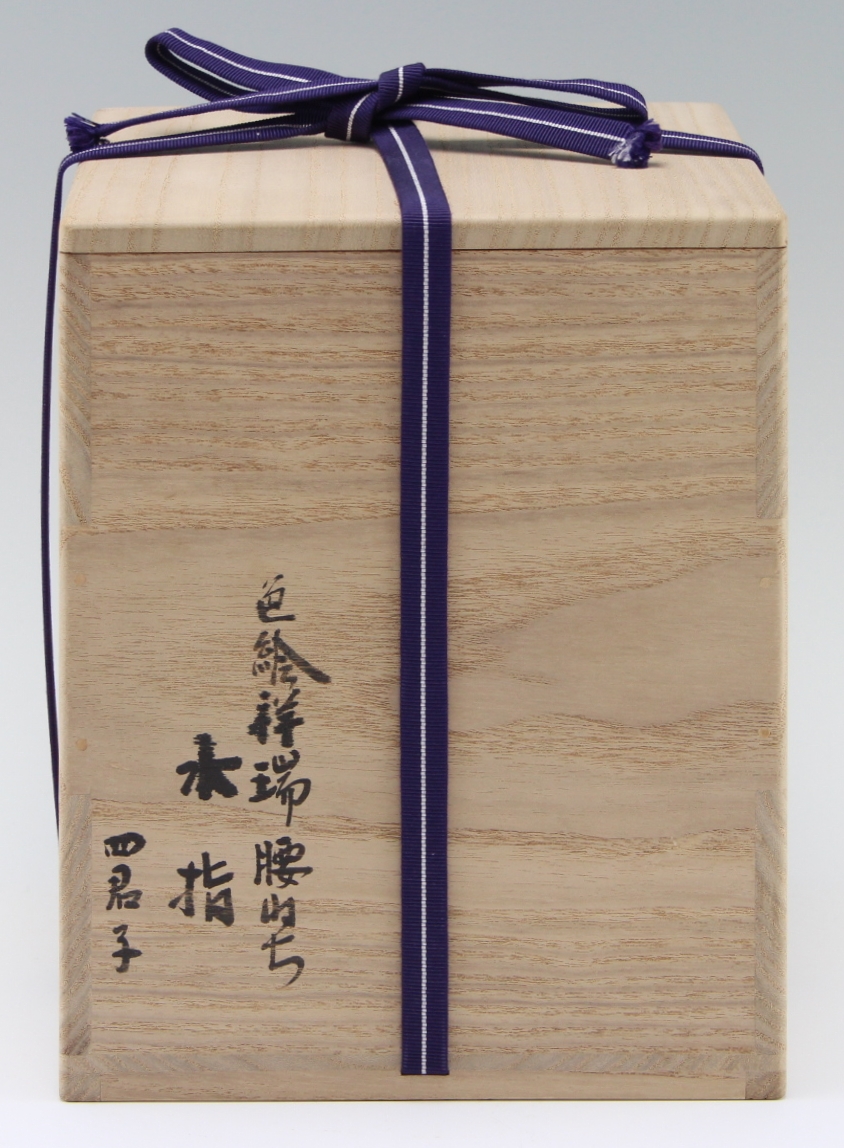 色絵祥瑞腰
水指
四君子